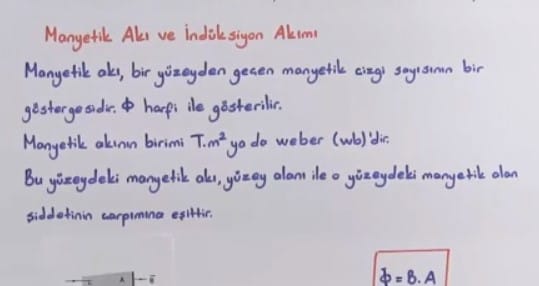 Manyetik Akı ve İndüksiyon Akımı
Manyetik akı, bir yüzeyden geçen manyetik çizgi sayısının bir
göstergesidir. Φ harfi ile gösterilir.
Manyetik akının birimi T.m² ya da weber (wb)'dir.
Bu yüzeydeki manyetik akı, yüzey alanı ile o yüzeydeki manyetik alan
şiddetinin çarpımına eşittir.
A
Φ = B. A